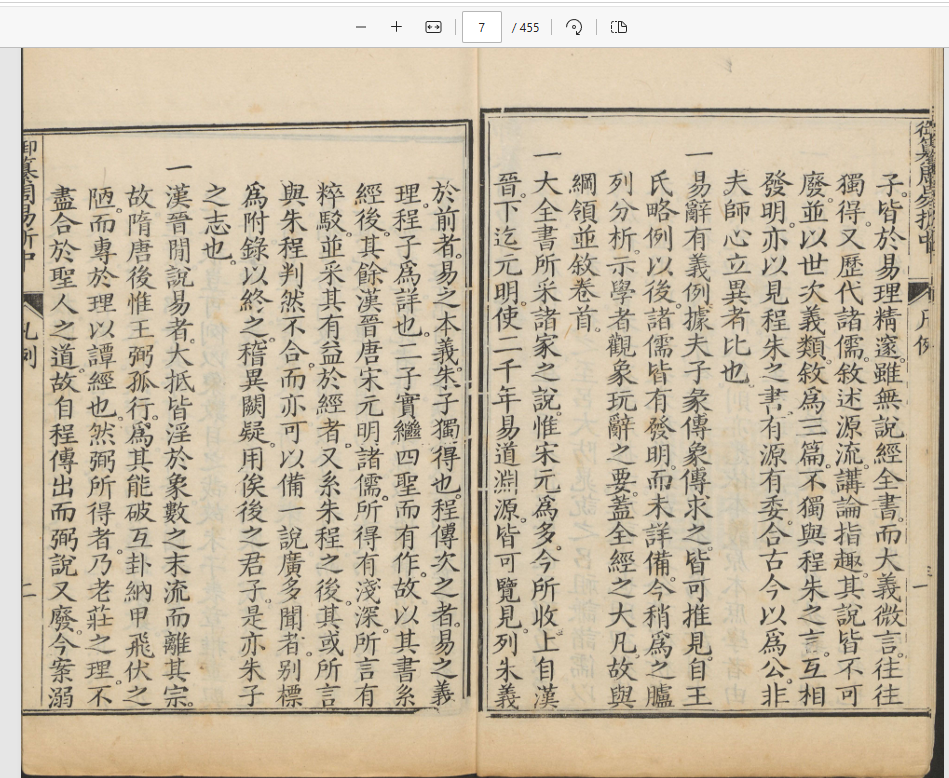 7 / 455
御纂周易折中
凡例
一
子。皆於易理精邃。雖無說經全書。而大義微言。往往
獨得。又歷代諸儒。敘述源流。講論指趣。其說皆不可
廢。並以世次義類。敘爲三篇。不獨與程朱之言。互相
發明。亦以見程朱之書。有源有委。合古今以爲公。非
夫師心立異者比也。
一易辭有義例。據夫子彖傳象傳求之。皆可推見。自王
氏略例以後。諸儒皆有發明。而未詳備。今稍爲之臚
列分析。示學者觀象玩辭之要。蓋全經之大凡。故與
綱領並敘卷首。
一大全書所采諸家之說。惟宋元爲多。今所收上自漢
晉。下迄元明。使二千年易道淵源。皆可覽見。列朱義
於前者。易之本義。朱子獨得也。程傳次之者。易之義
理。程子爲詳也。二子實繼四聖而有作。故以其書系
經後。其餘漢晉唐宋元明諸儒。所得有淺深。所言有
粹駁。並采其有益於經者。又系朱程之後。其或所言
與朱程判然不合。而亦可以備一說廣多聞者。别標
爲附錄以終之。稽異闕疑。用俟後之君子。是亦朱子
之志也。
一漢晉閒說易者。大抵皆淫於象數之末流。而離其宗。
故隋唐後惟王弼孤行。爲其能破互卦納甲飛伏之
陋。而專於理以譚經也。然弼所得者。乃老莊之理。不
盡合於聖人之道。故自程傳出而弼說又廢。今案溺
御纂周易折中
凡例
二